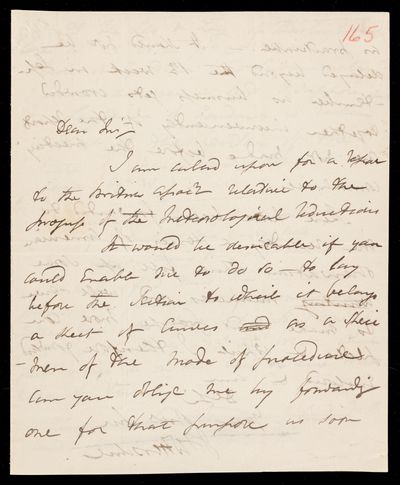 165
Dear Sir,
I am called upon for a Report
to the British Assoctn relative to the
progress of the Meteorological Reductions
It would be desireable if you
could enable me to do so – to lay
before the Section to which it belongs
a sheet of Curves and as a speci
-men of the mode of procedure
Can you oblige me by forwardg
one for that purpose as soon